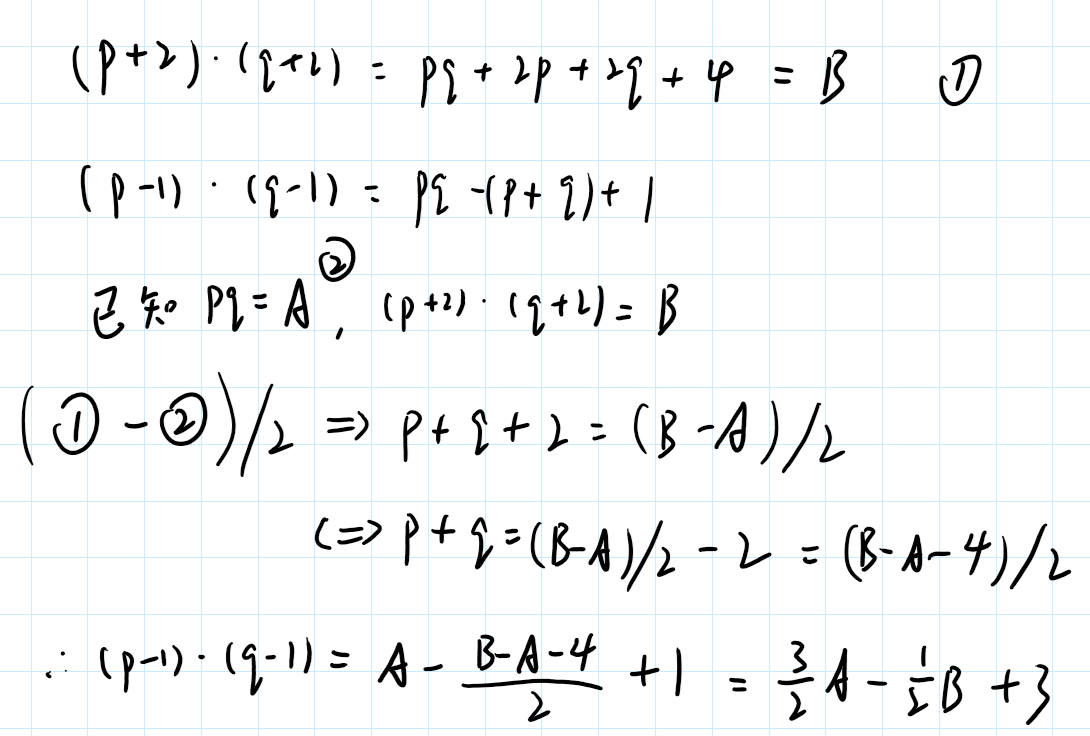 (p+2)·(q+2) = pq + 2p + 2q + 4 = B ①
(p-1)·(q-1) = pq -(p+q)+1
已知 pq=A ②, (p+2)·(q+2)=B
(①-②)/2 ⇒ p+q+2=(B-A)/2
⇔ p+q=(B-A)/2-2=(B-A-4)/2
∴ (p-1)·(q-1)= A - \frac{B-A-4}{2} +1 = \frac{3}{2}A - \frac{1}{2}B +3